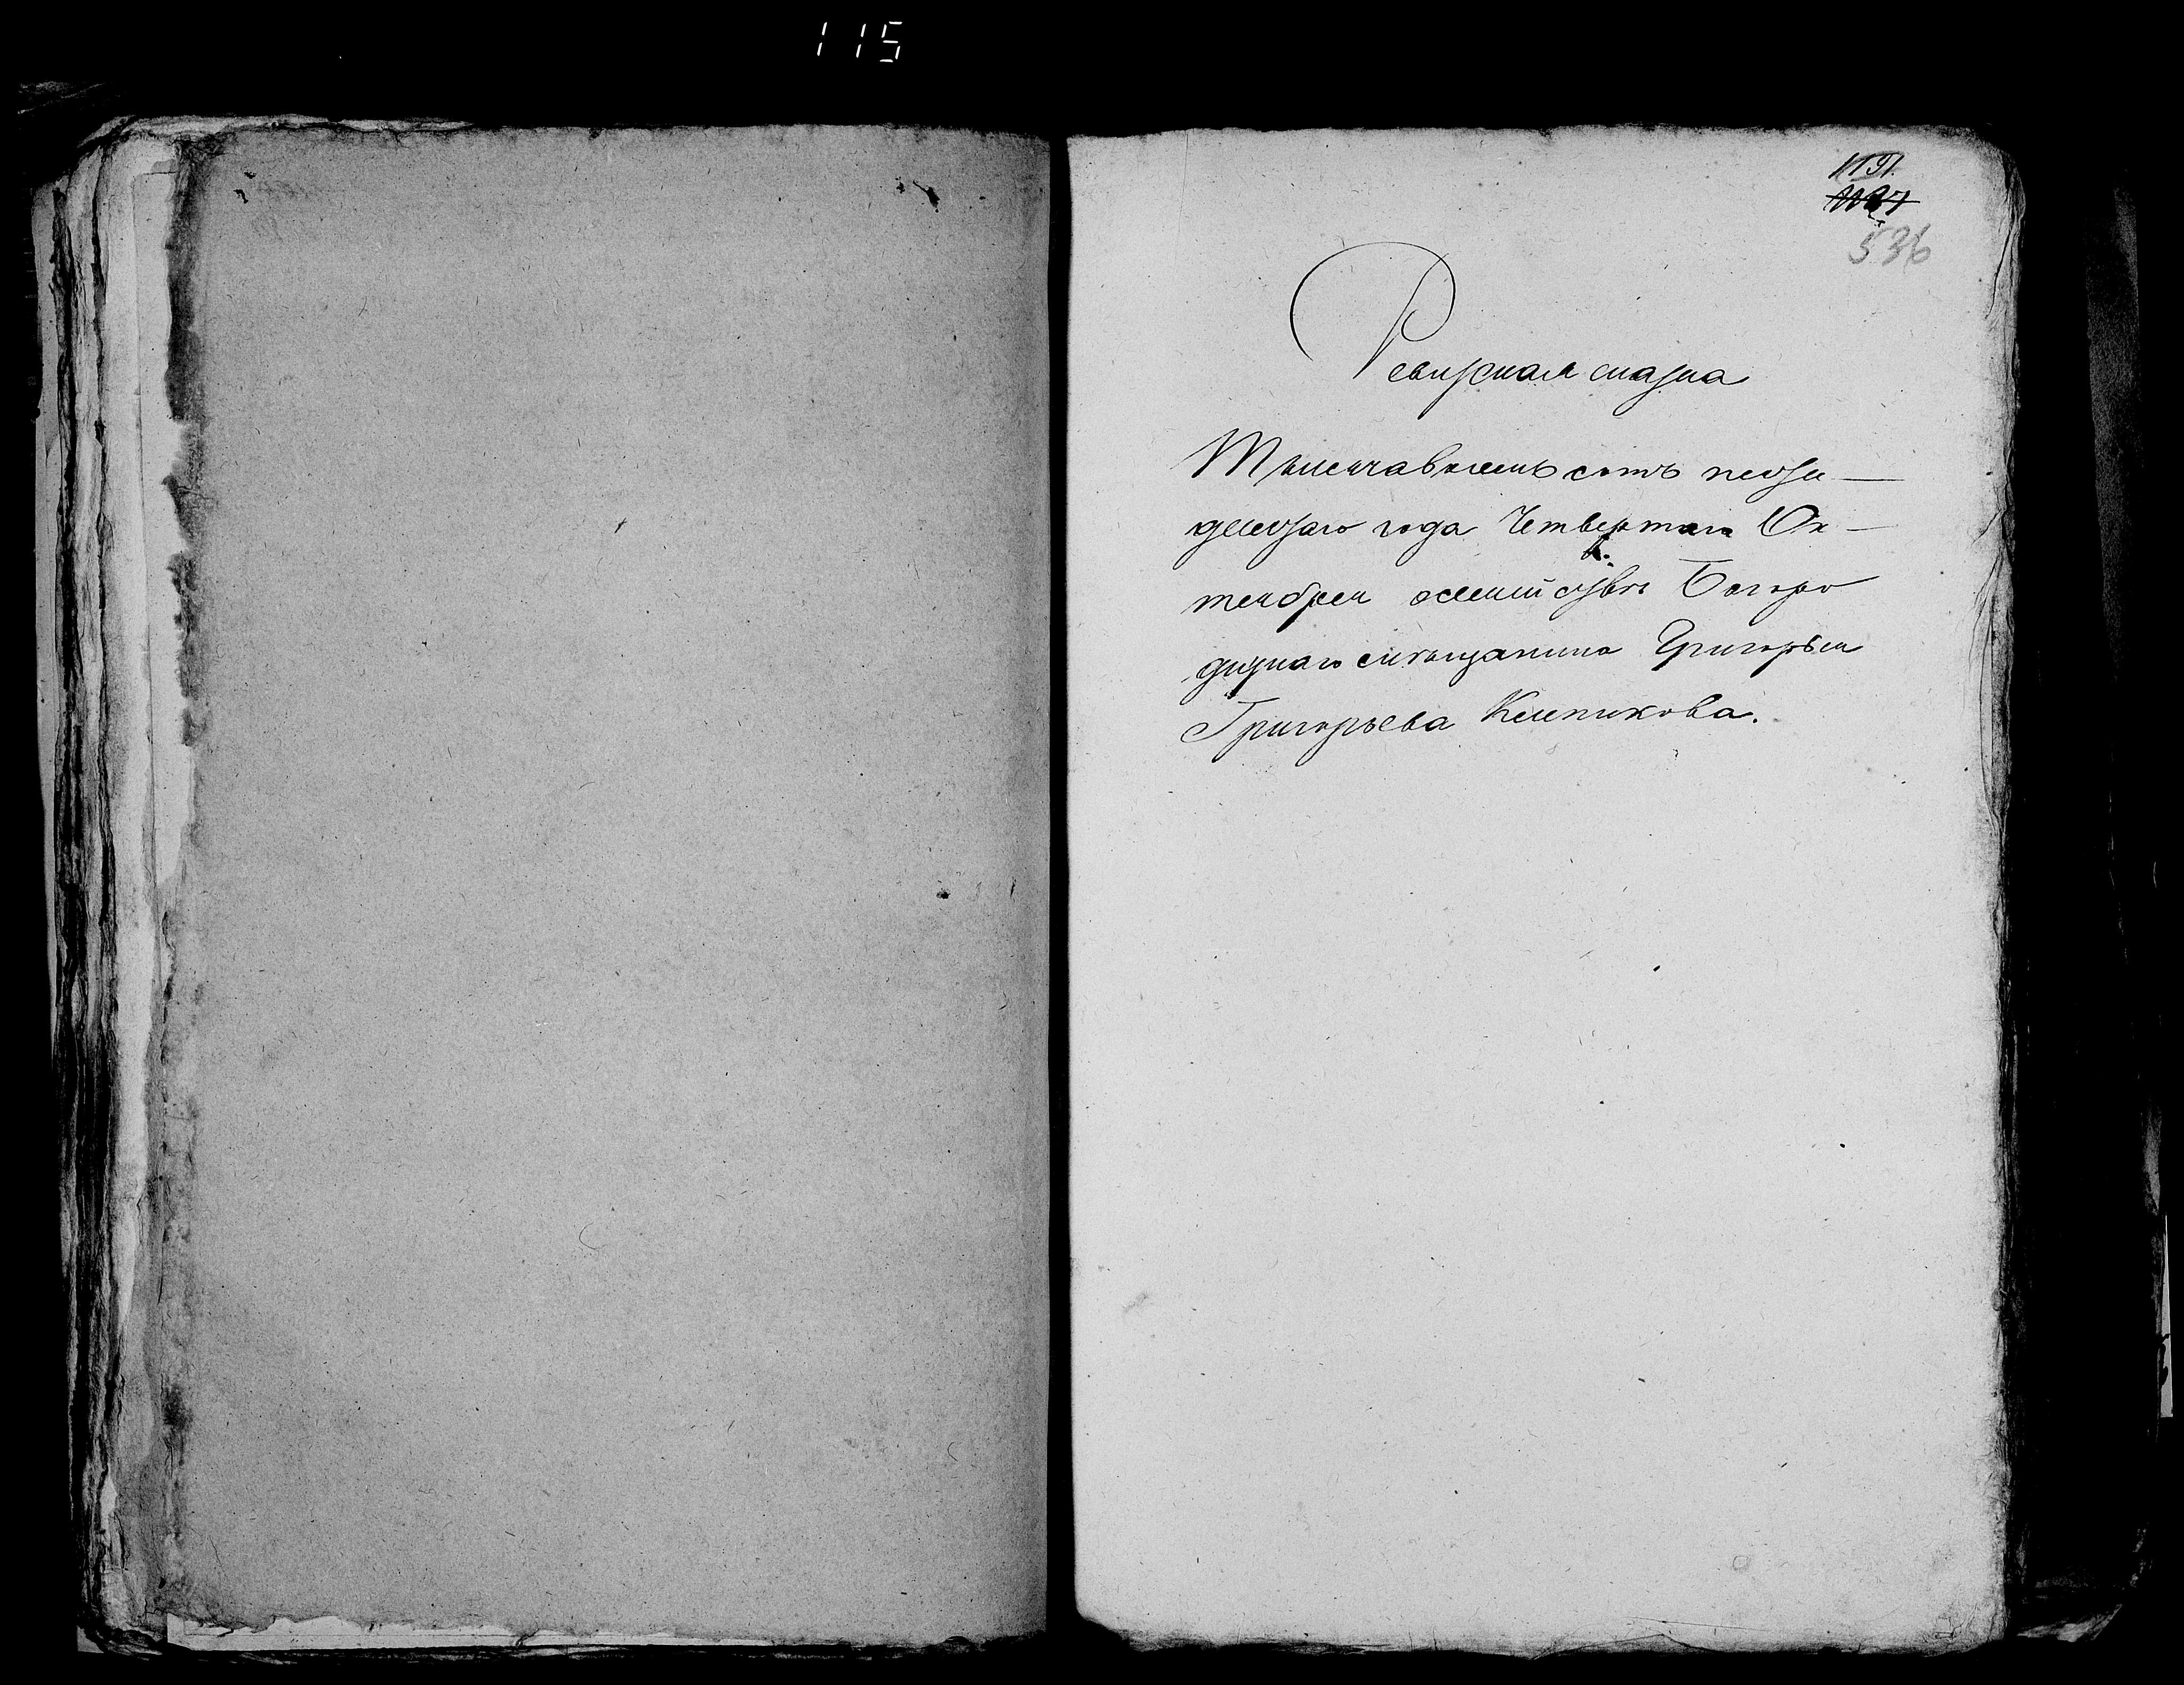 115
1191.
1187
536
Ревизская сказка
Тысяча восемь сотъ пядьи —
десядаго года Четвертаго Ок —
тября семейсдвѣ Богоро
дицкаго мѣщанина Григорья
Григорьева Клепикова.